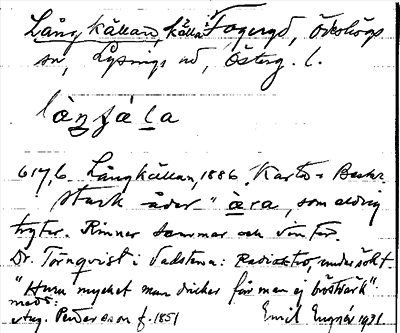 Långkällan, källa i Fogergd, Ödeshögs
sn, Lysings hd, Österg. l.
617,6 Långkällan, 1886. Karto = Beskr.
Stark åder "åra, som aldrig
tryter. Rinner sommar och vinter.
Dr. Törnqvist i Vadstena: Radioaktiv, undersökt.
"Hum mycket man dricker får man ej bröstvärk".
medd:
Aug. Petterson f. 1851 Emil 1931